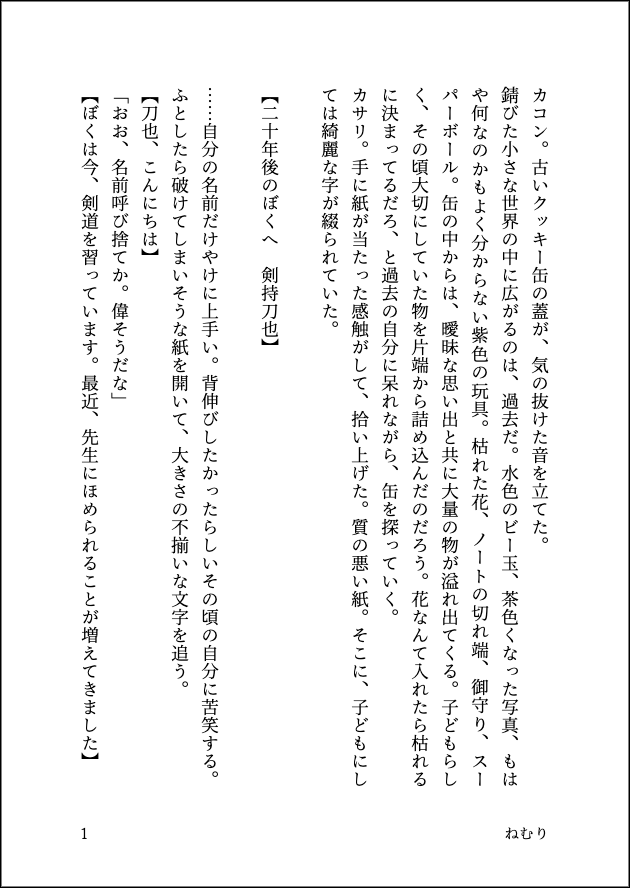 カコン。古いクッキー缶の蓋が、気の抜けた音を立てた。
錆びた小さな世界の中に広がるのは、過去だ。水色のビー玉、茶色くなった写真、もは
や何なのかもよく分からない紫色の玩具。枯れた花、ノートの切れ端、御守り、スー
パーボール。缶の中からは、曖昧な思い出と共に大量の物が溢れ出てくる。子どもらし
く、その頃大切にしていた物を片端から詰め込んだのだろう。花なんて入れたら枯れる
に決まってるだろ、と過去の自分に呆れながら、缶を探っていく。
カサリ。手に紙が当たった感触がして、拾い上げた。質の悪い紙。そこに、子どもにし
ては綺麗な字が綴られていた。
【二十年後のぼくへ　剣持刀也】
……自分の名前だけやけに上手い。背伸びしたかったらしいその頃の自分に苦笑する。
ふとしたら破けてしまいそうな紙を開いて、大きさの不揃いな文字を追う。
【刀也、こんにちは】
「おお、名前呼び捨てか。偉そうだな」
【ぼくは今、剣道を習っています。最近、先生にほめられることが増えてきました】
ねむり
1